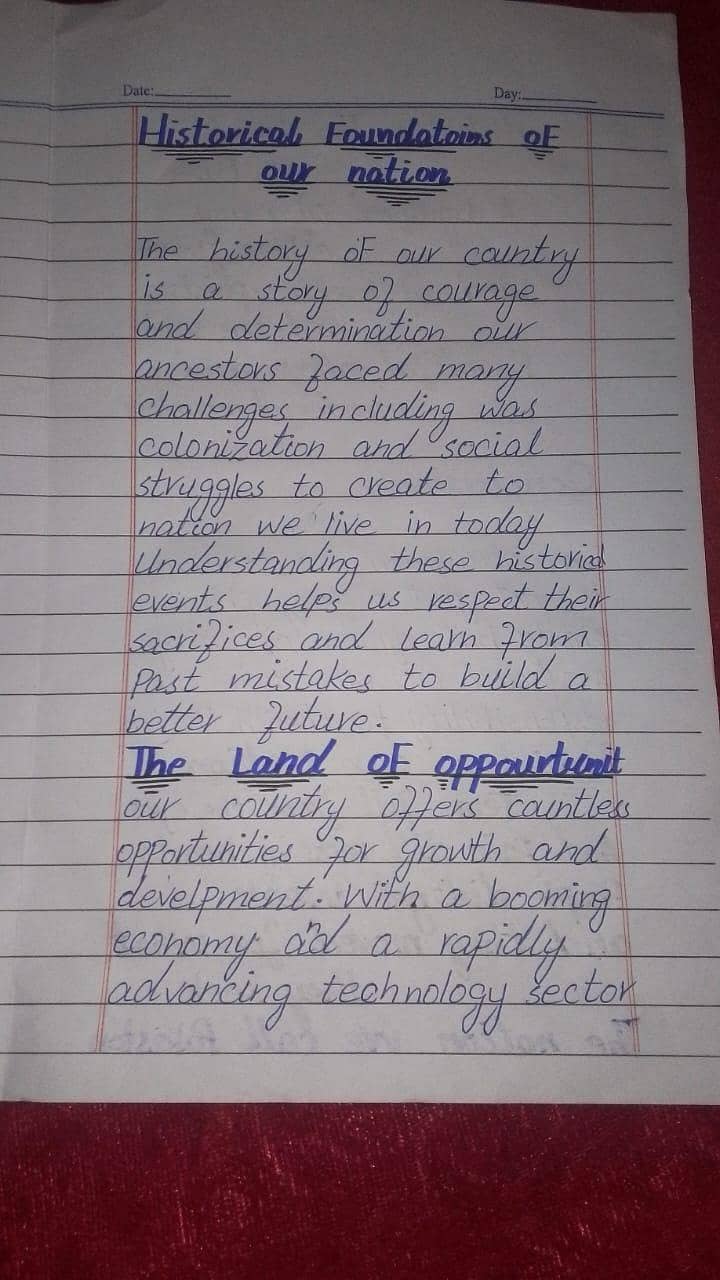 Date:
Day:
Historical Foundatoins of
our nation
The history of our country
is a story of courage
and determination our
ancestors faced many
challenges including was
colonization and social
struggles to create to
nation we live in today
Understanding these historical
events helps us respect their
sacrifices and learn from
Past mistakes to build a
better future.
The Land of oppourtunit
our country offers countless
opportunities for growth and
develpment. With a booming
economy ad a rapidly
advancing technology sector